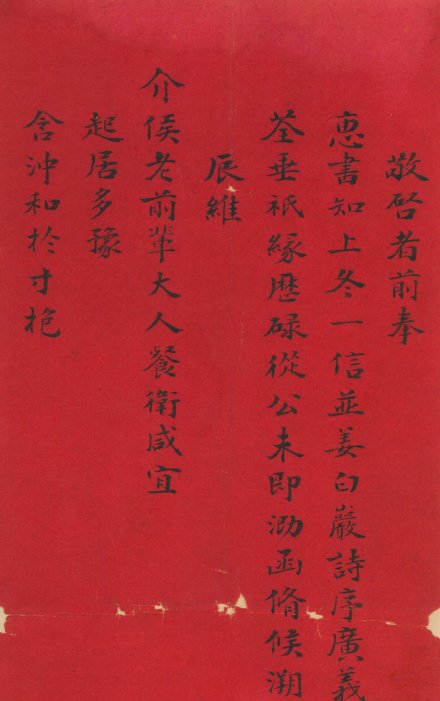 敬启者前奉
惠書知上冬一信並姜白巖詩序廣義
荃垂祇緣歷碌從公未即泐函脩候溯
辰維
介侯老前輩大人餐衛咸宜
起居多豫
含沖和於寸抱